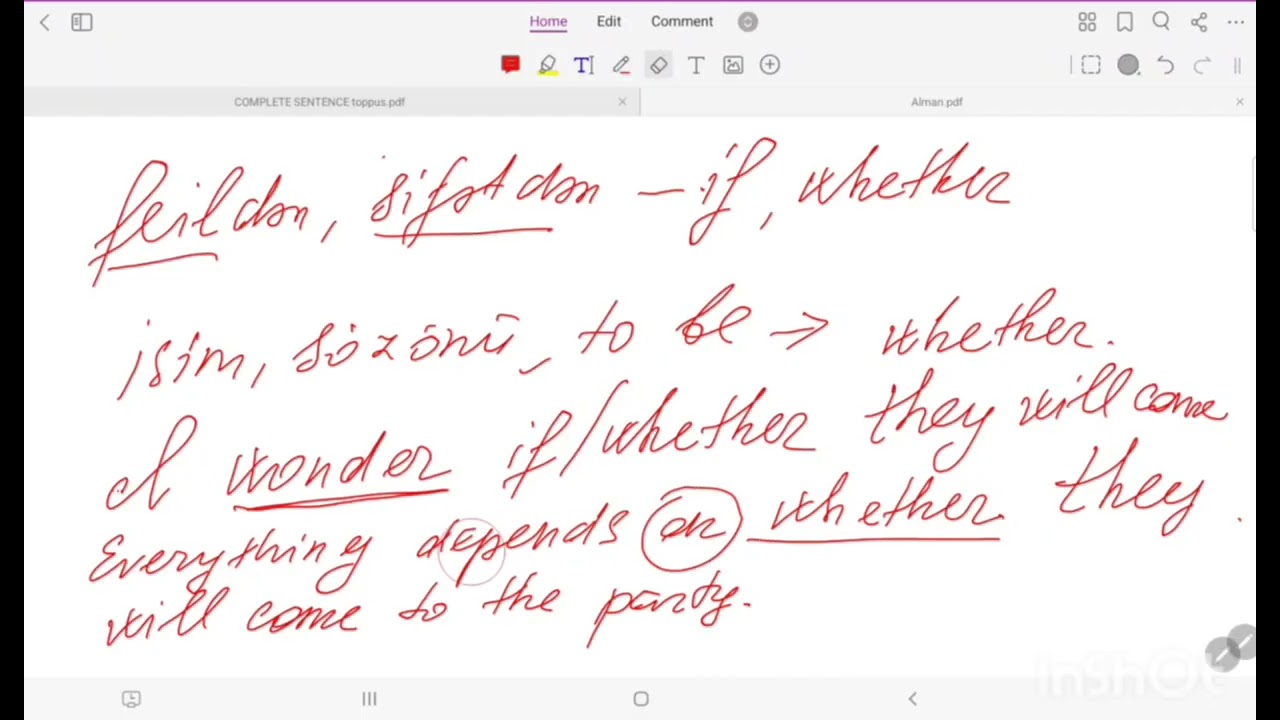 Home Edit Comment
COMPLETE SENTENCE toppus.pdf
Alman.pdf
feildən, sifətdən – if, whether
isim, sözönü, to be → whether.
I wonder if/whether they will come
Everything depends on whether they
will come to the party.
InShOt